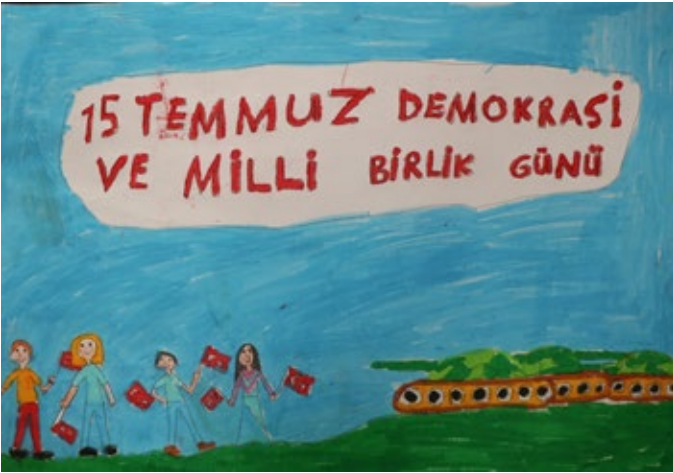 15 TEMMUZ DEMOKRASİ
VE MİLLİ BİRLİK GÜNÜ